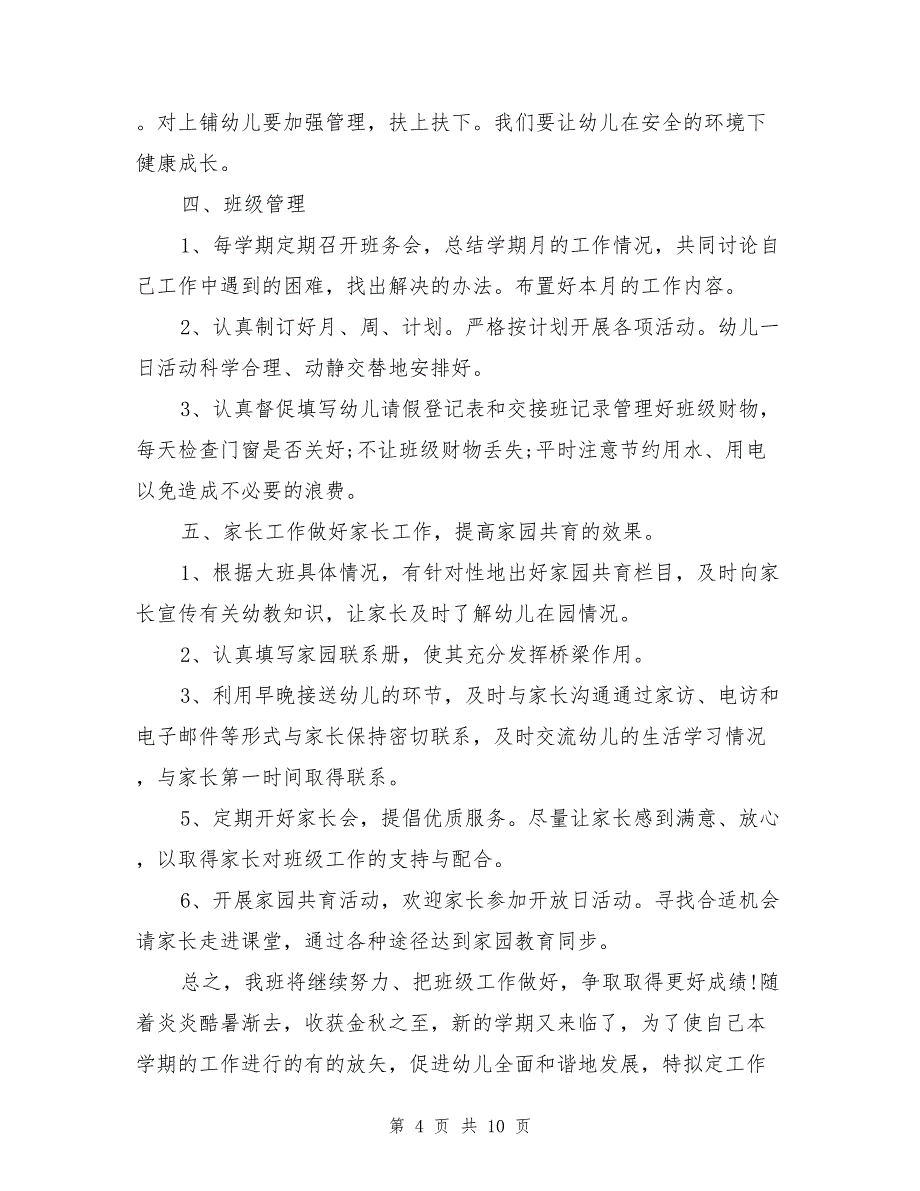 。对上铺幼儿要加强管理，扶上扶下。我们要让幼儿在安全的环境下
健康成长。
四、班级管理
1、每学期定期召开班务会，总结学期月的工作情况，共同讨论自
己工作中遇到的困难，找出解决的办法。布置好本月的工作内容。
2、认真制订好月、周、计划。严格按计划开展各项活动。幼儿一
日活动科学合理、动静交替地安排好。
3、认真督促填写幼儿请假登记表和交接班记录管理好班级财物，
每天检查门窗是否关好;不让班级财物丢失;平时注意节约用水、用电
以免造成不必要的浪费。
五、家长工作做好家长工作，提高家园共育的效果。
1、根据大班具体情况，有针对性地出好家园共育栏目，及时向家
长宣传有关幼教知识，让家长及时了解幼儿在园情况。
2、认真填写家园联系册，使其充分发挥桥梁作用。
3、利用早晚接送幼儿的环节，及时与家长沟通通过家访、电访和
电子邮件等形式与家长保持密切联系，及时交流幼儿的生活学习情况
，与家长第一时间取得联系。
5、定期开好家长会，提倡优质服务。尽量让家长感到满意、放心
，以取得家长对班级工作的支持与配合。
6、开展家园共育活动，欢迎家长参加开放日活动。寻找合适机会
请家长走进课堂，通过各种途径达到家园教育同步。
总之，我班将继续努力、把班级工作做好，争取取得更好成绩!随
着炎炎酷暑渐去，收获金秋之至，新的学期又来临了，为了使自己本
学期的工作进行的有的放矢，促进幼儿全面和谐地发展，特拟定工作
第 4 页 共 10 页